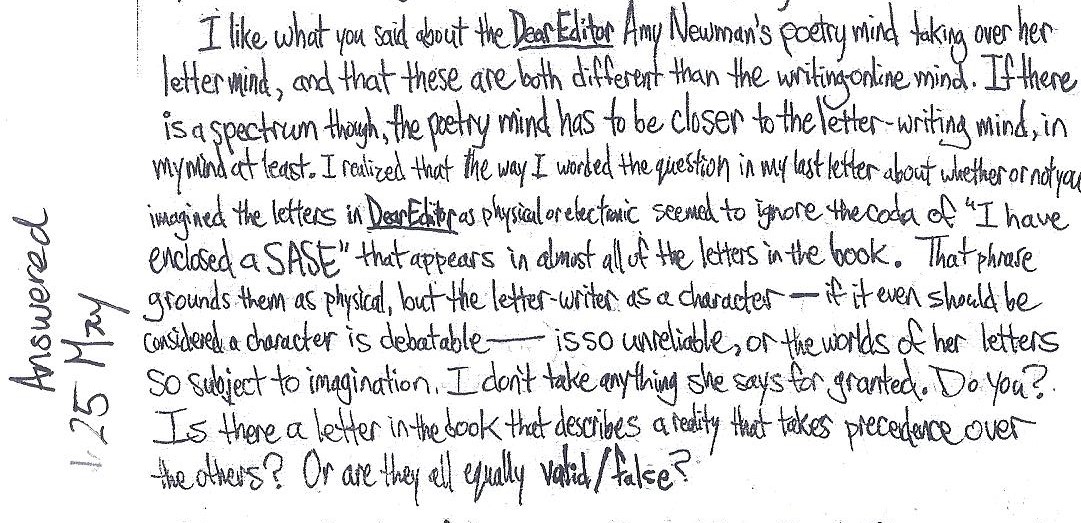 I like what you said about the Dear Editor Amy Newman's poetry mind taking over her
letter mind, and that these are both different than the writing-online mind. If there
is a spectrum though, the poetry mind has to be closer to the letter-writing mind, in
my mind at least. I realized that the way I worded the question in my last letter about whether or not you
imagined the letters in Dear Editor as physical or electronic seemed to ignore the coda of "I have
enclosed a SASE" that appears in almost all of the letters in the book. That phrase
grounds them as physical, but the letter-writer as a character — if it even should be
considered a character is debatable — is so unreliable, or the worlds of her letters
so subject to imagination. I don't take anything she says for granted. Do you?
Is there a letter in the book that describes a reality that takes precedence over
the others? Or are they all equally valid/false?
Answered
25 May